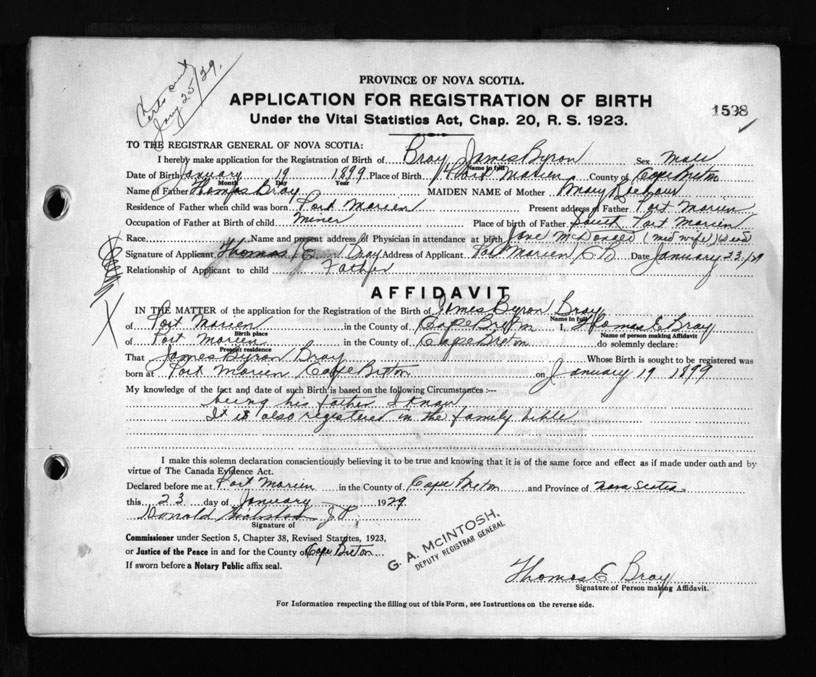 Certs sent
Jany 25/29.
PROVINCE OF NOVA SCOTIA.
APPLICATION FOR REGISTRATION OF BIRTH
1538
Under the Vital Statistics Act, Chap. 20, R. S. 1923.
TO THE REGISTRAR GENERAL OF NOVA SCOTIA:
I hereby make application for the Registration of Birth of Bray, James Byron Sex Male
Name in full
Date of Birth January 19 1899 Place of Birth Port Morien County of Cape Breton
Month Day Year
Name of Father Thomas Bray MAIDEN NAME of Mother Mary
Residence of Father when child was born Port Morien Present address of Father Port Morien
Occupation of Father at Birth of child Miner Place of birth of Father South Port Morien
Race Name and present address of Physician in attendance at birth Jane McDonald (midwife) (dead)
Signature of Applicant Thomas E Bray Address of Applicant Port Morien C B Date January 23/29
Relationship of Applicant to child Father
AFFIDAVIT
IN THE MATTER of the application for the Registration of the Birth of James Byron Bray
Name in full
of Port Morien in the County of Cape Breton I, Thomas E Bray
Birth place Name of person making Affidavit
of Port Morien in the County of Cape Breton do solemnly declare:
Present residence
That James Byron Bray Whose Birth is sought to be registered was
born at Port Morien Cape Breton on January 19 1899
My knowledge of the fact and date of such Birth is based on the following Circumstances :—
being his father I know
It is also registered in the family bible
I make this solemn declaration conscientiously believing it to be true and knowing that it is of the same force and effect as if made under oath and by
virtue of The Canada Evidence Act.
Declared before me at Port Morien in the County of Cape Breton and Province of Nova Scotia
this 23 day of January 1929
Donald J.P.
Signature of
Commissioner under Section 5, Chapter 38, Revised Statutes, 1923,
or Justice of the Peace in and for the County of Cape Breton
If sworn before a Notary Public affix seal.
G. A. McINTOSH,
DEPUTY REGISTRAR GENERAL
Thomas E Bray
Signature of Person making Affidavit.
For Information respecting the filling out of this Form, see Instructions on the reverse side.